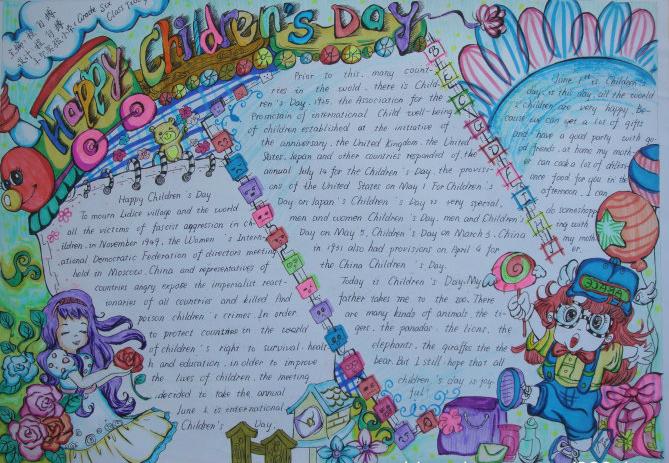 Grade Six
Class Two
Happy Children's Day
Happy Children's Day
To mourn Lidice village and the world
all the victims of fascist aggression in ch-
ildren, in November 1949, the Women's Intern-
ational Democratic Federation of directors meeting
held in Moscow, China and representatives of
countries angry expose the imperialist react-
ionaries of all countries and killed And
poison children's crimes. In order
to protect countries in the world
of children's right to survival, healt
h and education, in order to improve
the lives of children, the meeting
decided to take the annual
June 1 is international
Children's Day.
Prior to this, many count-
ries in the world, there is Child-
ren's Day, 1925, the Association for the
of international Child well-being
of children established at the initiative of
the anniversary, the United Kingdom, the United
States, Japan and other countries responded of the
annual July 14 for the Children's Day, the provisi-
ons of the United States on May 1 For Children's
Day on Japan's Children's Day is very special,
men and women Children's Day, men and Children's
Day on May 5, Children's Day on March 3. China
in 1931 also had provisions on April 4 for
the China Children's Day.
Today is Children's Day. My
father takes me to the zoo. There
are many kinds of animals, the ti-
gers, the pandas, the lions, the
elephants, the giraffes the the
bear. But I still hope that all
children's day is joy-
ful
June 1st is Children's
day, in this day, all the world
children are very happy be-
cause we can get a lot of gifts
and have a good party with go-
od friends, at home my moth-
er can cook a lot of differ
ence food for you in the
afternoon. I can
do something
ing with
my moth
er.